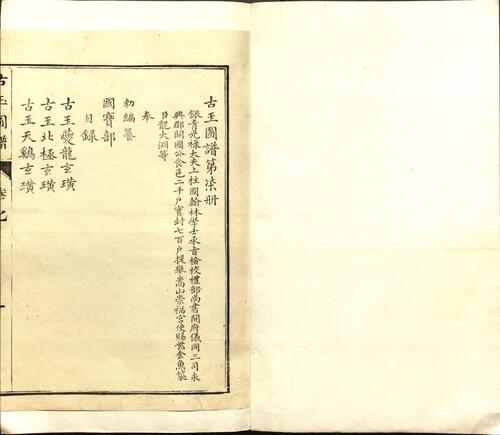 古玉圖譜第柒册
銀青光祿大夫上柱國翰林學士承旨檢校禮部尚書開府儀同三司永
興郡開國公食邑二千戶實封七百戶提舉嵩山崇福宮使賜紫金魚袋
臣龍大淵等
奉
勅編纂
國寶部
目錄
古玉夔龍玄璜
古玉北極玄璜
古玉天鷄玄璜
古玉圖譜
卷七
一